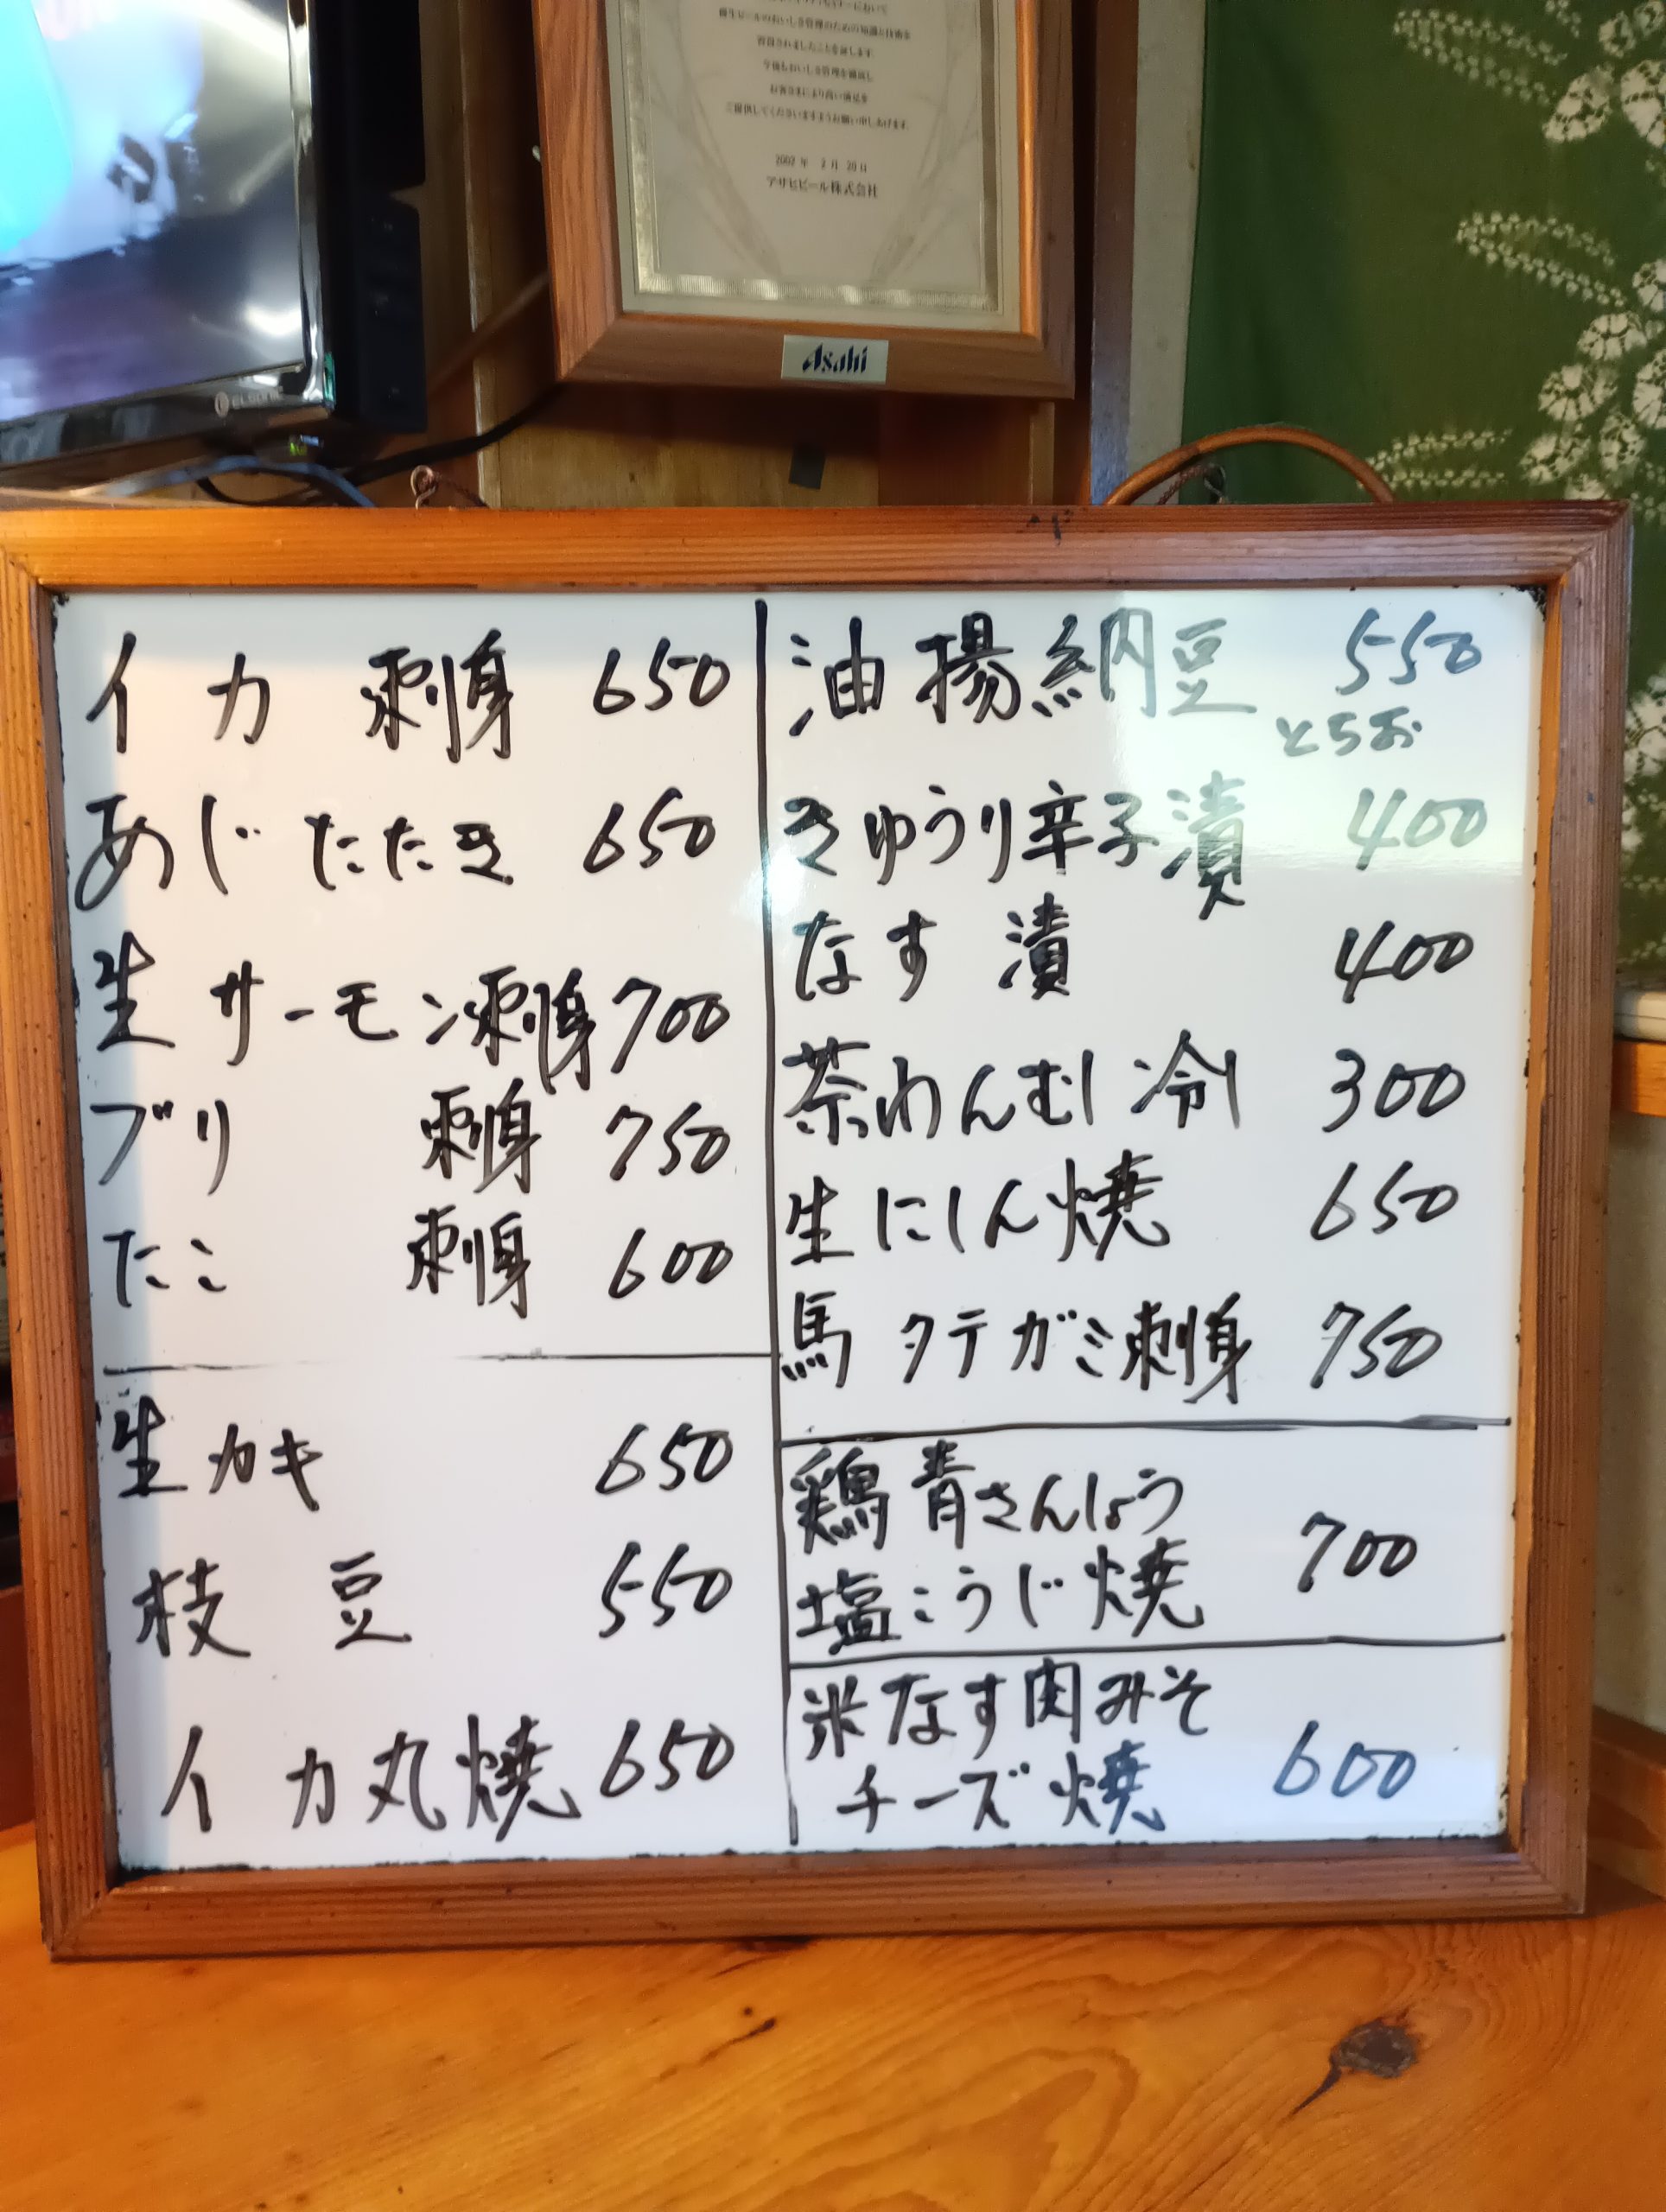 習得されましたことを証します
今後もおいしさ管理を徹底し
お客さまにより高い満足を
ご提供してくださいますようお願い申しあげます
2002年 2月 20日
アサヒビール株式会社
Asahi
ELSONIC
イカ 刺身 650
あじ たたき 650
生サーモン刺身 700
ブリ 刺身 750
たこ 刺身 600
生カキ 650
枝豆 550
イカ丸焼 650
油揚納豆 550
とちお
きゆうり辛子漬 400
なす漬 400
茶わんむし 冷 300
生にしん焼 650
馬タテガミ刺身 750
鶏青さんしょう
塩こうじ焼 700
米なす肉みそ
チーズ焼 600